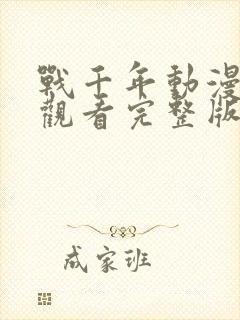 戰千年動漫
觀看完整版
成家班